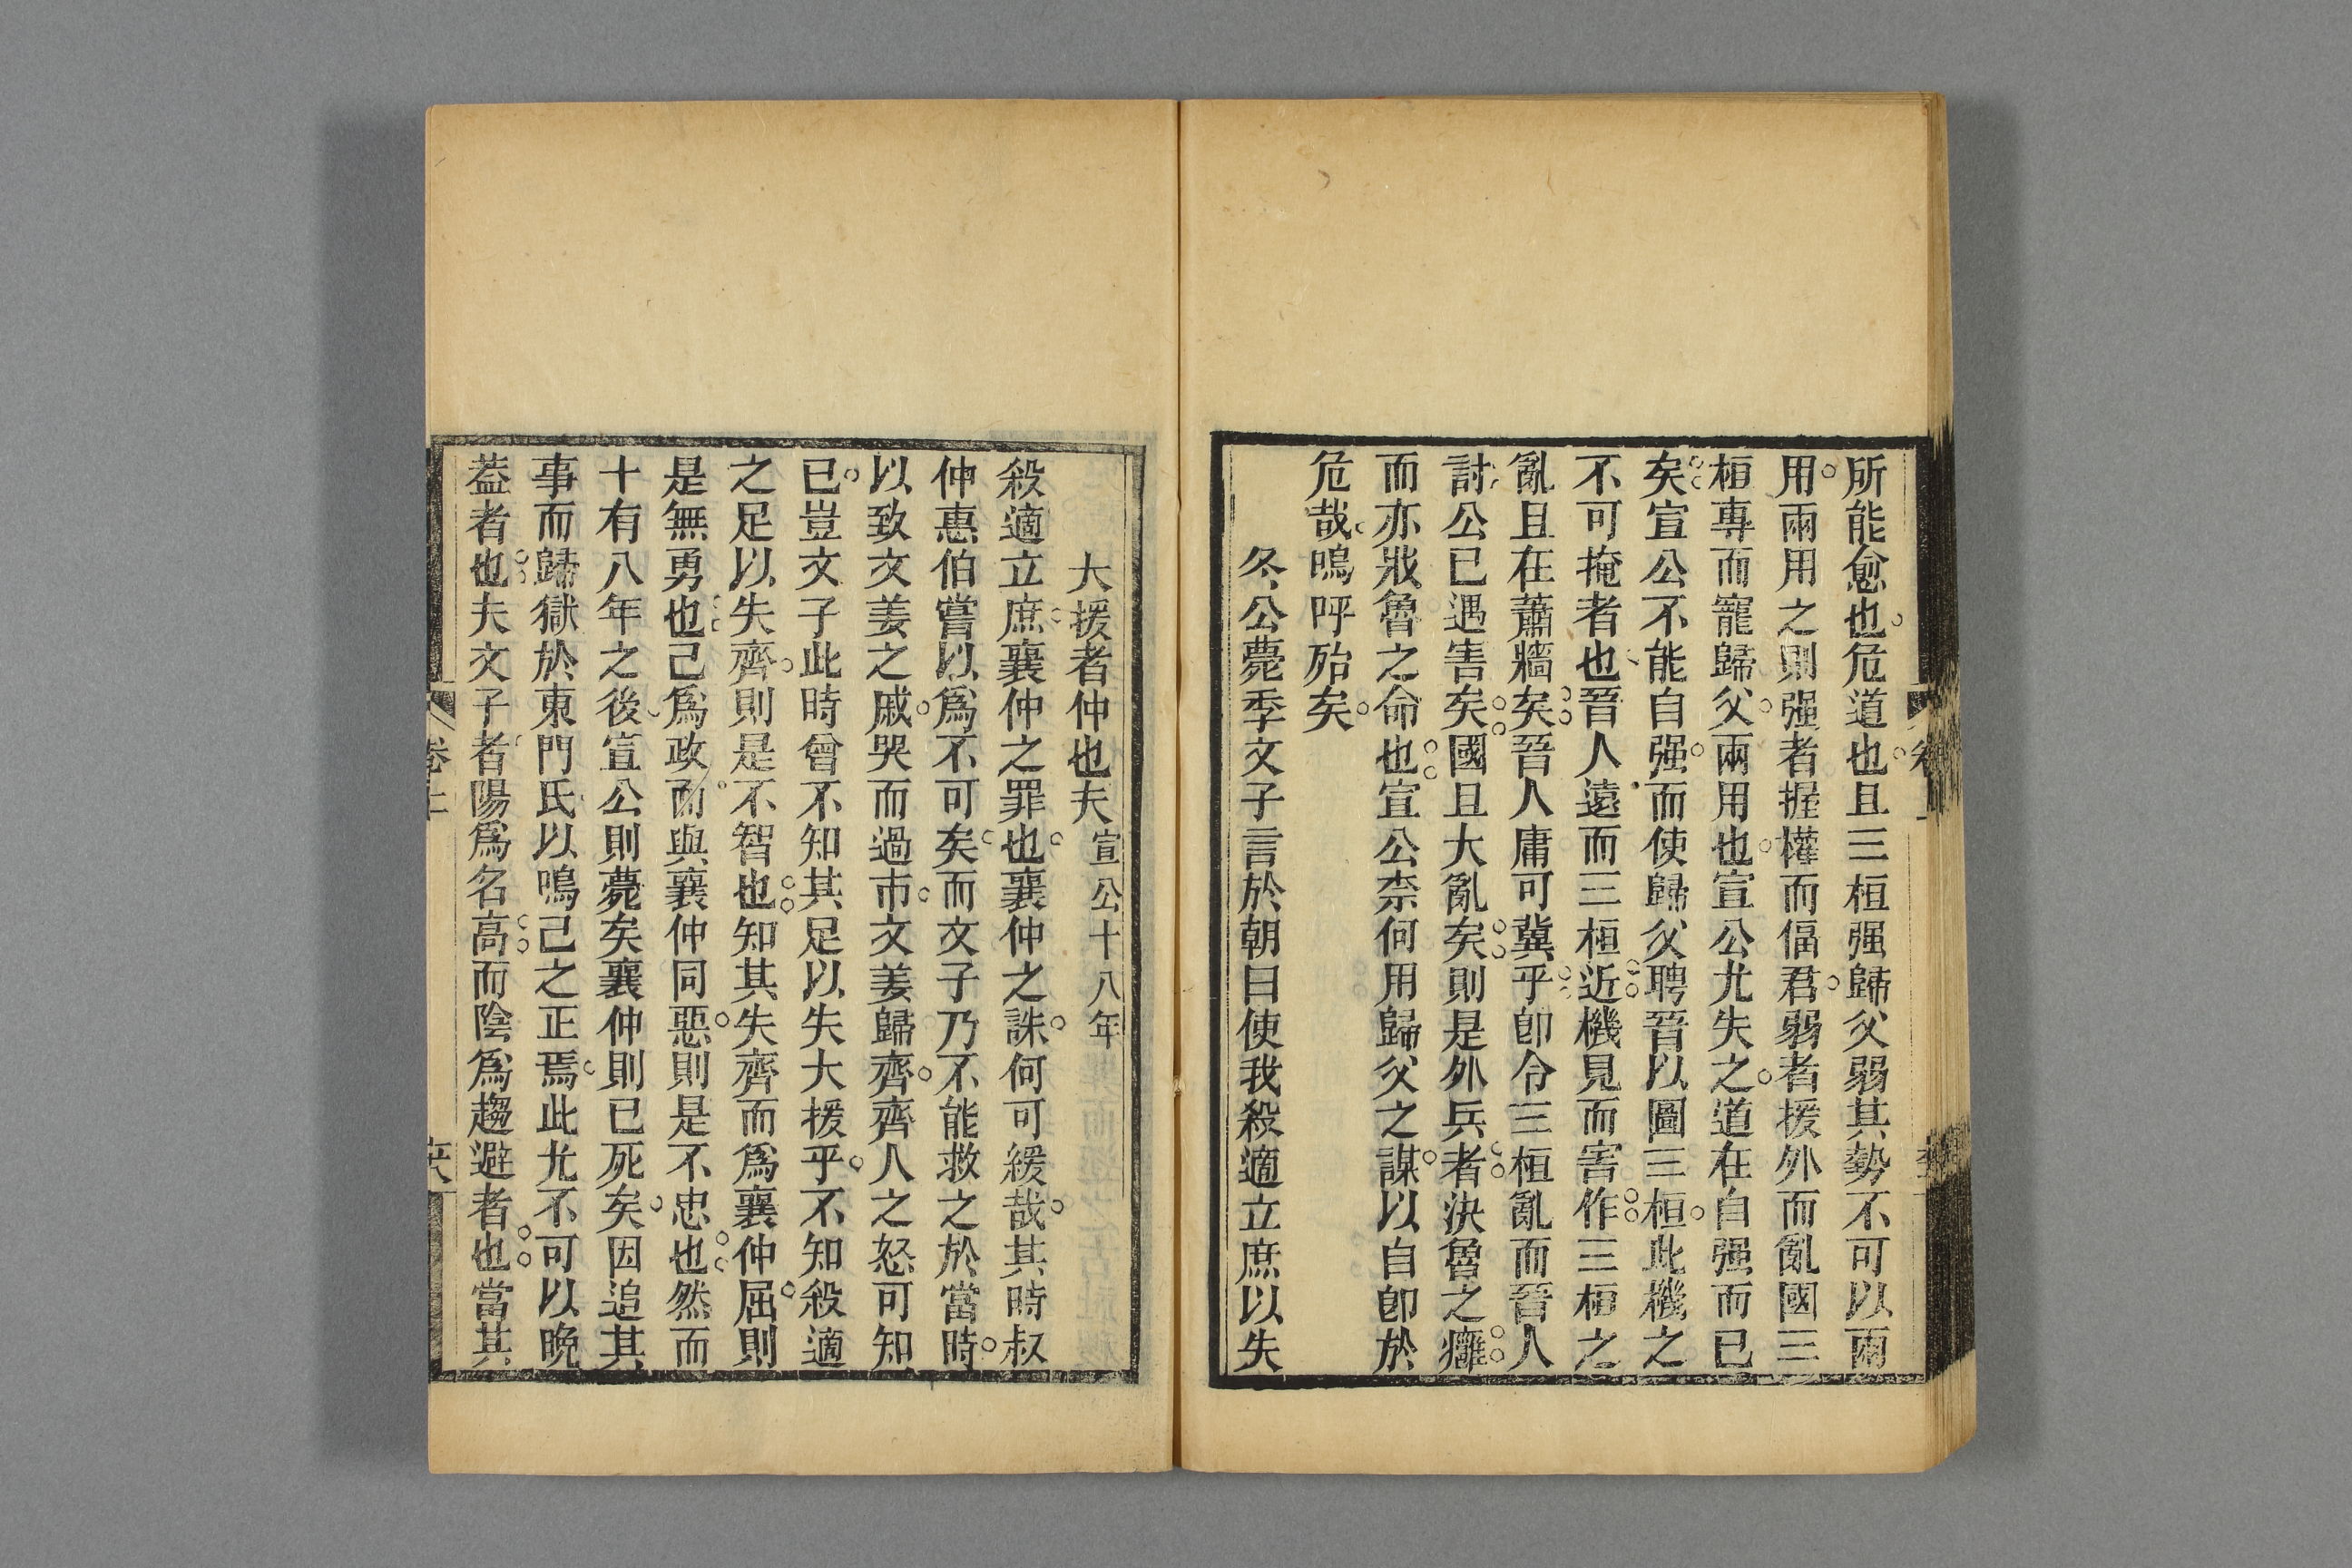 所能愈也危道也且三桓强歸父弱其勢不可以兩
用兩用之則强者握權而偪君弱者援外而亂國三
桓專而寵歸父兩用也宣公尤失之道在自强而已
矣宣公不能自强而使歸父聘晉以圖三桓此機之
不可掩者也晉人遠而三桓近機見而害作三桓之
亂且在蕭牆矣晉人庸可冀乎卽令三桓亂而晉人
討公已遇害矣國且大亂矣則是外兵者決魯之癰
而亦戕魯之命也宣公柰何用歸父之謀以自卽於
危哉嗚呼殆矣
冬公薨季文子言於朝曰使我殺適立庶以失
大援者仲也夫宣公十八年
殺適立庶襄仲之罪也襄仲之誅何可緩哉其時叔
仲惠伯嘗以爲不可矣而文子乃不能救之於當時
以致文姜之戚哭而過市文姜歸齊齊人之怒可知
已豈文子此時曾不知其足以失大援乎不知殺適
之足以失齊則是不智也知其失齊而爲襄仲屈則
是無勇也己爲政而與襄仲同惡則是不忠也然而
十有八年之後宣公則薨矣襄仲則已死矣因追其
事而歸獄於東門氏以鳴己之正焉此尤不可以晚
葢者也夫文子者陽爲名高而陰爲趨避者也當其
卷上